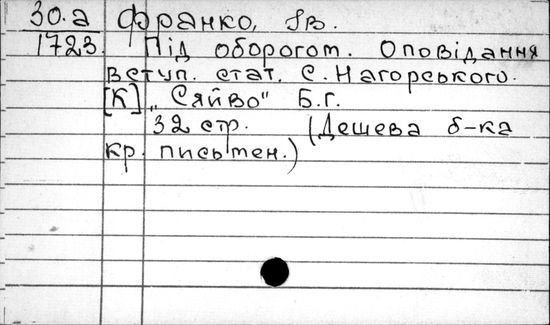 30.а Франко, Ів.
1723. Під оборогом. Оповідання
Вступ. стат. Є. Нагорського.
[К] „Сяйво" Б.г.
32 стр. (Дешева б-ка
кр. письмен.)